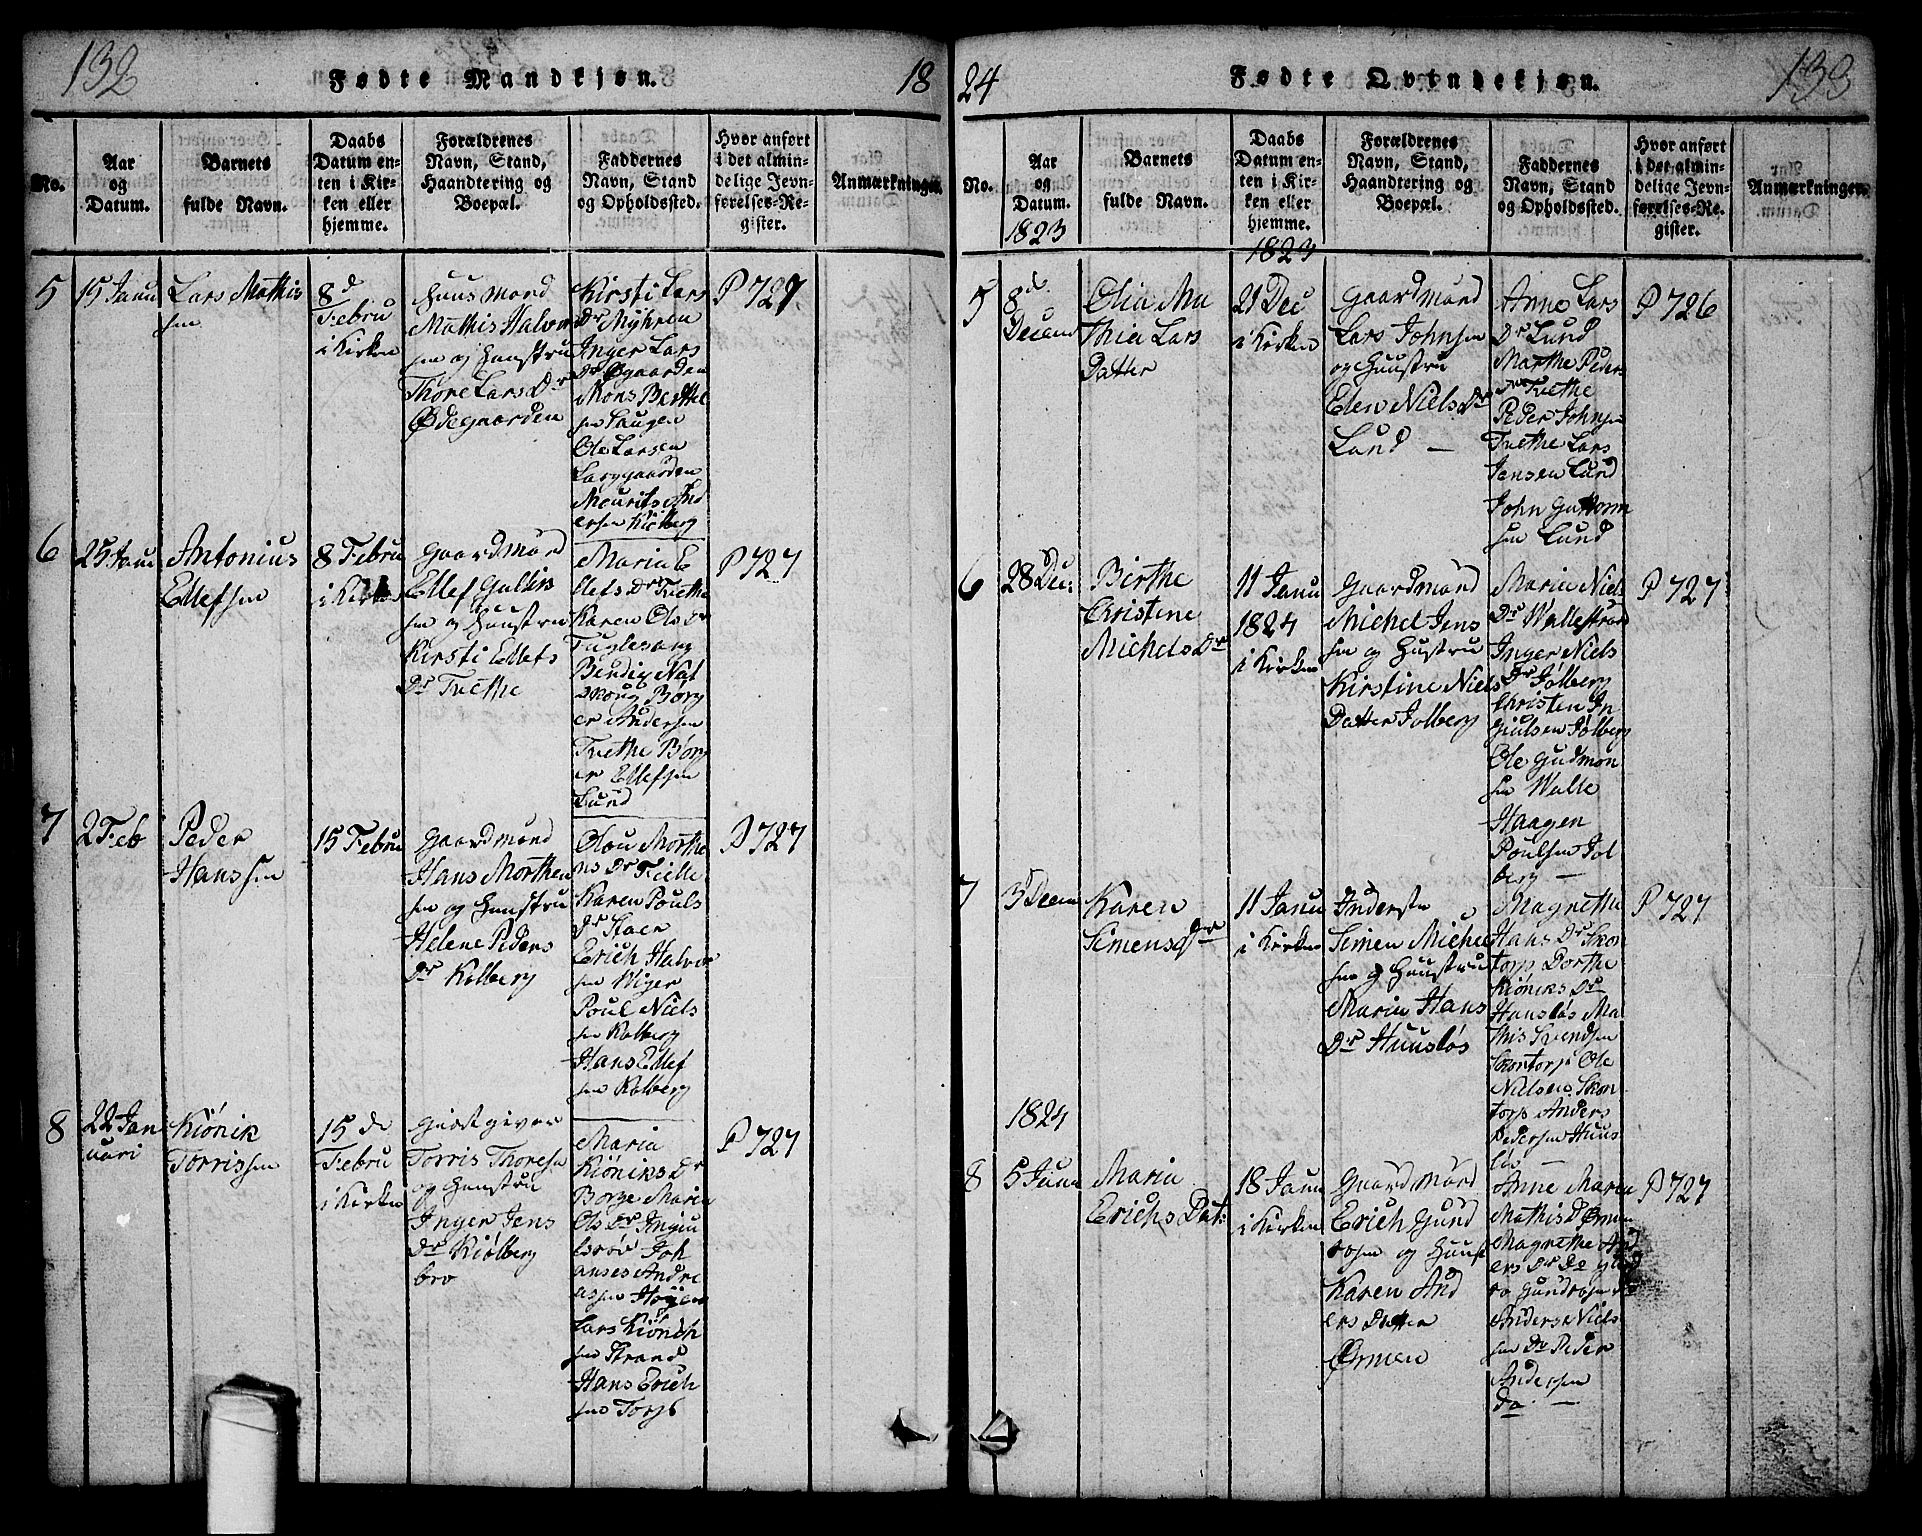 132
Fødte Mandkjøn.
18
No.
Aar
og
Datum.
Barnets
fulde Navn.
Daabs
Datum en-
ten i Kir-
ken eller
hjemme.
Forældrenes
Navn, Stand,
Haandtering og
Boepæl.
Faddernes
Navn, Stand
og Opholdssted.
Hvor anført
i det almin-
delige Jevn-
førelses-Re-
gister.
Anmærkninger.
5
15 Janu
Lars Mathis
sen
8 d
Febru
i Kirken
Huusmand
Mathis Halvor
sen og Huustru
Thore Lars Dr
Ødegaarden
Kirsti Lars
Dr Myhren
Inger Lars
Dr Øgaarden
Mons Berthe
sen Haugen
Ole Larsen
Langgaarden
Mourits And
ersen Kidberg
P 727
6
25 Janu
Antonius
Ellefsen
8 Febru
i Kirken
Gaardmand
Ellef Gulliks
sen og Huustru
Kirsti Ellefs
Dr Tvethe
Maria E
llefs Dr Tvethe
Karen Ols Dr
Fuglesang
Bendix Nal
skoug Børg
er Andersen
Tvethe Børg
er Ellefsen
Lund
P 727
7
2 Feb
Peder
Hanssen
15 Febru
Gaardmand
Hans Morthen
sen og Huustru
Helene Peders
Dr Kolberg
Olou Morthe
ns Dr Fielle
Karen Pouls
Dr Stoer
Erich Halvor
sen Wiger
Poul Niels
sen Kolberg
Hans Ellef
sen Kolberg
P 727
8
22 Jan
uari
Kiönik
Torrissen
15 de
Febru
i Kirken
Giæstgiver
Torris Thoresen
og Huustru
Inger Jens
Dr Kiølberg
bro
Maria
Kiöniks Dr
Borge Maria
Ols Dr Ingiu
lsrøv Joh
annes Andre
asen Høyen
Lars Kiönik
sen Strand
Hans Erich
sen Torp
P 727
24
Fødte Qvindekjøn.
133
No.
Aar
og
Datum.
1823
Barnets
fulde Navn.
Daabs
Datum en-
ten i Kir-
ken eller
hjemme.
1823
Forældrenes
Navn, Stand,
Haandtering og
Boepæl.
Faddernes
Navn, Stand
og Opholdssted.
Hvor anført
i det almin-
delige Jevn-
førelses-Re-
gister.
Anmærkninger.
5
8 d
Decem
Olia Ma
thia Lars
Datter
21 Dec
i Kirken
Gaardmand
Lars Johnsen
og Huustru
Elen Niels Dr
Lund —
Anne Lars
Dr Lund
Marthe Peders
Dr Tvethe
Peder Johnsen
Tvethe Lars
Jensen Lund
John Guttorm
sen Lund
P 726
6
28 Dec:
Birthe
Christine
Michels Dr
11 Janu
1824
i Kirken
Gaardmand
Michel Jens
sen og Hustru
Kirstine Niels
Datter Jolberg
Maria Niels
Dr Wallestrand
Inger Niels
Dr Jølberg
Christen In
giulsen Jølberg
Ole Gudmon
sen Walle
Haagen
Poulsen Jol
berg —
P 727
7
3 Decem
Karen
Simens Dr
11 Janu
i Kirken
Inderste
Simen Michel
sen og Huustru
Maria Hans
Dr Huusløs
Magrethe
Hans Dr Skon
torp Dorthe
Kiöniks Dr
Hansløs Ma
this Svendsen
Skontorp Ole
Nielsen Skon
torp Anders
Pedersen Huus
løs —
P 727
1824
8
5 Janu
Maria
Erichs Dat:
18 Janu
i Kirken
Gaardmand
Erich Gund
rosen og Huust
Karen And
ers Datter
Ørmen
Anne Maria
Mathis D Ørmen
Magrethe And
ers Dr Do
Gundrosen
Anders Niels
sen Do Peder
Andersen
Do —
P 727